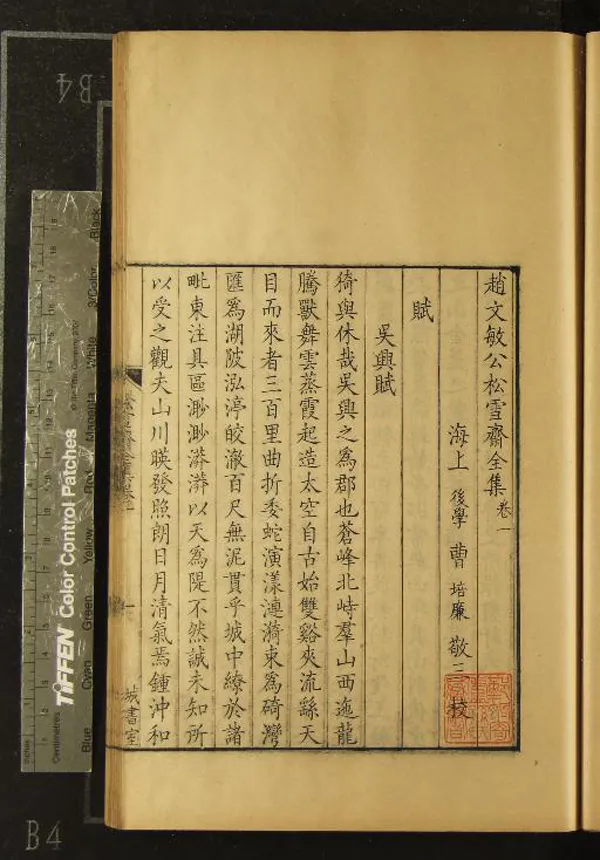 趙文敏公松雪齋全集卷一
海上 後學 曹 培廉 敬三 校
賦
吳興賦
猗與休哉吳興之為郡也蒼峰北峙羣山西迤龍
騰獸舞雲蒸霞起造太空自古始雙谿夾流繇天
目而來者三百里曲折委蛇演漾漣漪東為碕灣
匯為湖陂泓渟皎澈百尺無泥貫乎城中繚於諸
毗東注具區渺渺漭漭以天為隄不然誠未知所
以受之觀夫山川暎發照朗日月清氣焉鍾沖和
一
城書室
B4
B4
TIFFEN Color Control Patches
Centimetres
Inches
Blue
Cyan
Green
Yellow
Red
Magenta
White
3/Color
Black